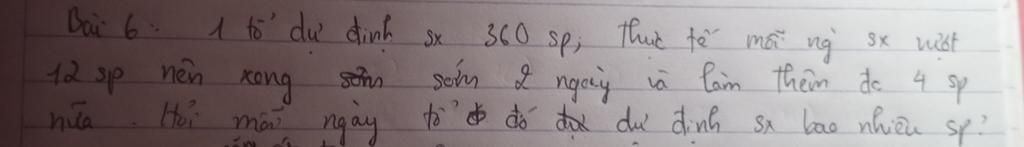 Bài 6: 1 tổ dự định sx 360 sp, thực tế mỗi ng sx vượt
12 sp nên xong sớm 2 ngày và làm thêm đc 4 sp
nữa. Hỏi mỗi ngày tổ đó dự định sx bao nhiêu sp?